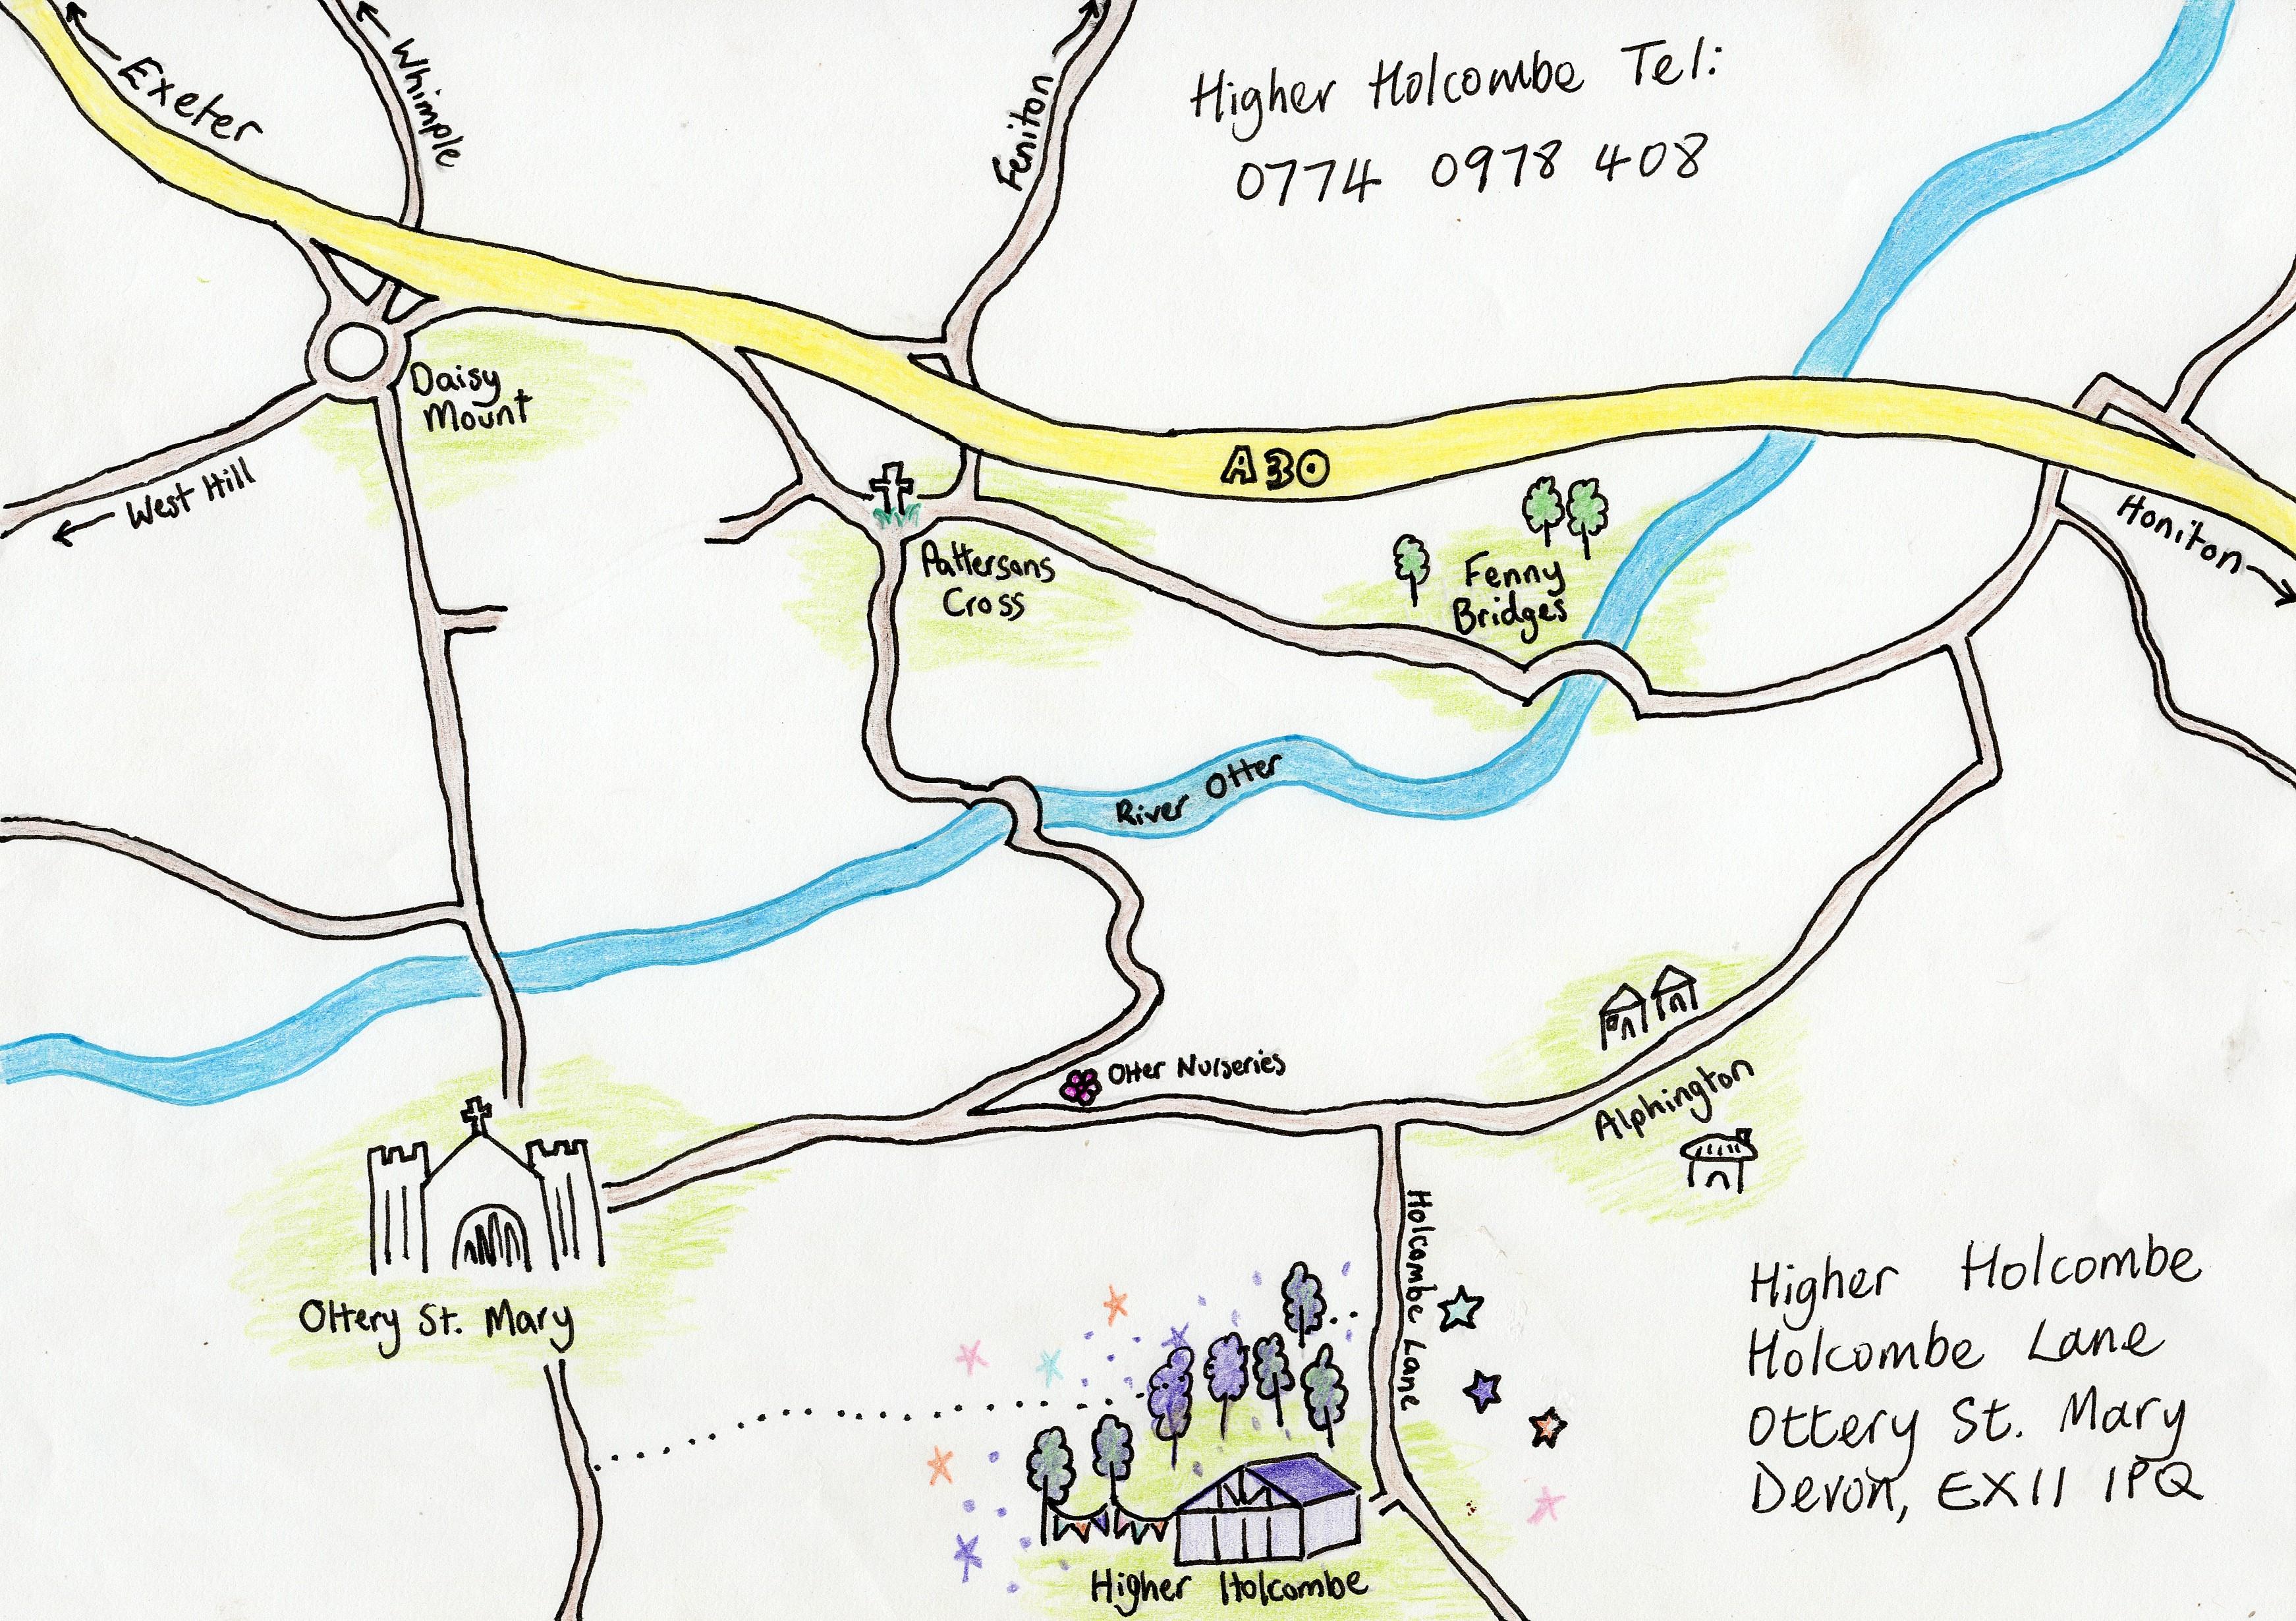 Exeter
Whimple
Feniton
Higher Holcombe Tel:
0774 0978 408
Daisy
Mount
West Hill
A30
Pattersons
Cross
Fenny
Bridges
Honiton
River Otter
Otter Nurseries
Alphington
Holcombe Lane
Ottery St. Mary
Higher Holcombe
Higher Holcombe
Holcombe Lane
Ottery St. Mary
Devon, EX11 1PQ